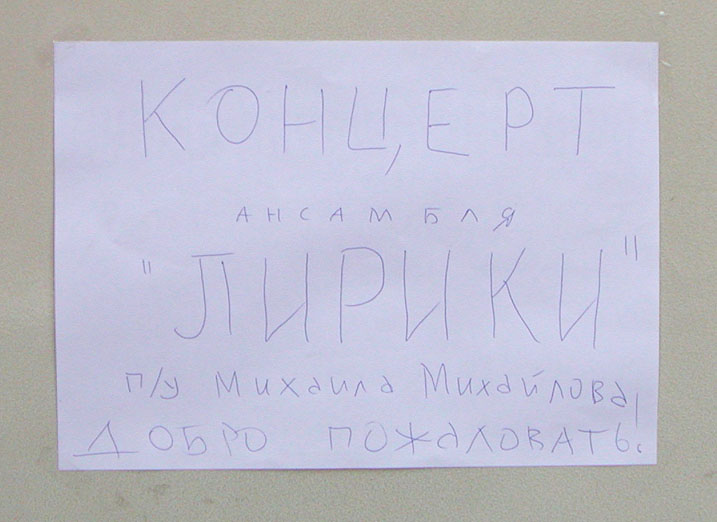 КОНЦЕРТ
АНСАМБЛЯ
"ЛИРИКИ"
п/у Михаила Михайлова!
ДОБРО ПОЖАЛОВАТЬ!